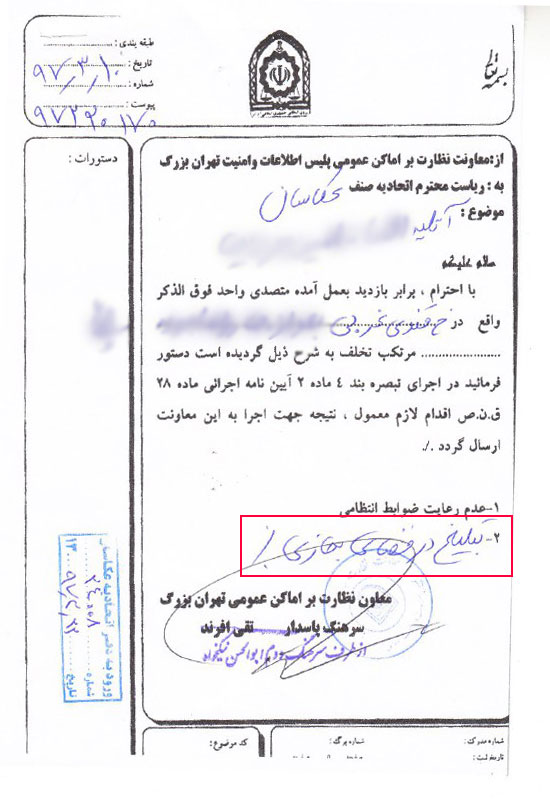 بسمه تعالی
طبقه بندی :
تاریخ : ۹۷/۳/۱۰
شماره :
پیوست :
۹۷۲۳۰۱۷۰
دستورات :
از: معاونت نظارت بر اماکن عمومی پلیس اطلاعات وامنیت تهران بزرگ
به : ریاست محترم اتحادیه صنف عکاسان
موضوع : آتلیه
سلام علیکم
با احترام ، برابر بازدید بعمل آمده متصدی واحد فوق الذکر
واقع در
مرتکب تخلف به شرح ذیل گردیده است دستور
فرمائید در اجرای تبصره بند ٤ ماده ۲ آیین نامه اجرائی ماده ۲۸
ق.ن.ص اقدام لازم معمول ، نتیجه جهت اجرا به این معاونت
ارسال گردد ./.
۱-عدم رعایت ضوابط انتظامی
۲- تبلیغ در فضای مجازی
معاون نظارت بر اماکن عمومی تهران بزرگ
سرهنگ پاسدار تقی افرند
از طرف سرهنگ ابوالحسن نیکخواه
ورود به دفتر اتحادیه عکاسان
شماره
تاریخ
کد موضوع :
شماره برگ :
شماره مدرک :
تاریخ ثبت :